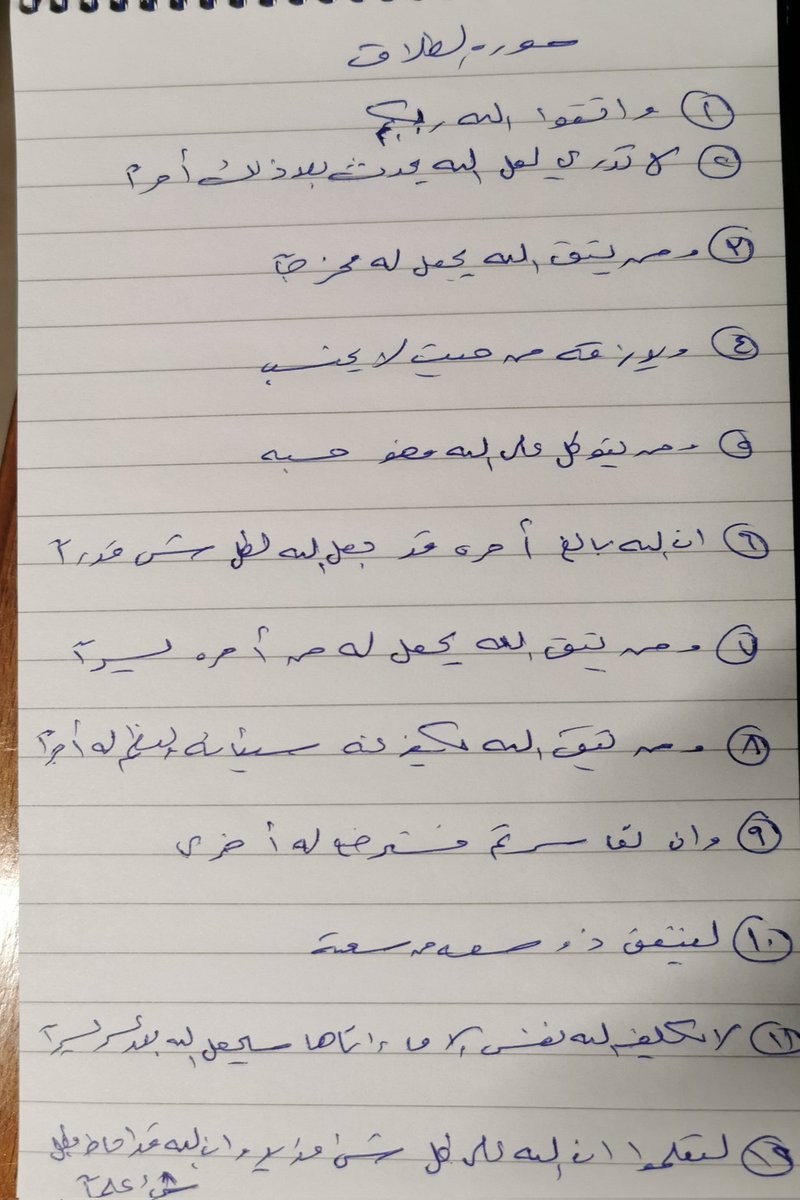 سورة الطلاق
١ واتقوا الله ربكم
٢ لا تدري لعل الله يحدث بعد ذلك أمراً
٣ ومن يتق الله يجعل له مخرجاً
٤ ويرزقه من حيث لا يحتسب
٥ ومن يتوكل على الله فهو حسبه
٦ ان الله بالغ أمره قد جعل الله لكل شئ قدراً
٧ ومن يتق الله يجعل له من أمره يسراً
٨ ومن يتق الله يكفر عنه سيئاته ويعظم له أجراً
٩ وان تعاسرتم فسترضع له أخرى
١٠ لينفق ذو سعه من سعته
١١ لا يكلف الله نفس الا ما ءاتاها سيجعل الله بعد عسر يسراً
١٢ لتعلموا ان الله على كل شئ قدير وان الله قد احاط بكل
شئ علماً